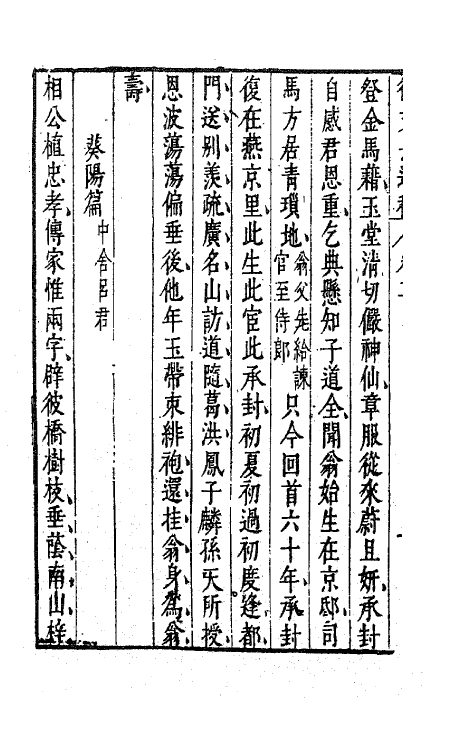 登金馬藉玉堂清切儼神仙章服從來蔚且妍承封
自感君恩重乞典懸知子道全聞翁始生在京邸司
馬方居青瑣地翁父先給諫官至侍郎只今回首六十年承封
復在燕京里此生此宦此承封初夏初過初度逢都
門送別羨疏廣名山訪道隨葛洪鳳子麟孫天所授
恩波蕩蕩偏垂後他年玉帶束緋袍還挂翁身爲翁
壽
葵陽篇中舍呂君
相公植忠孝傳家惟兩字辟彼橋樹枝垂蔭南山梓